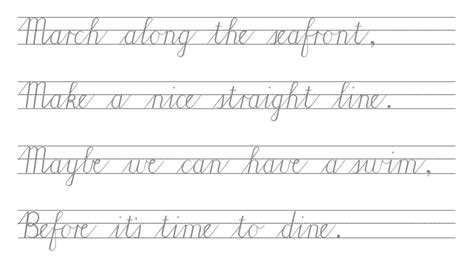 March along the seafront,
Make a nice straight line.
Maybe we can have a swim,
Before it's time to dine.